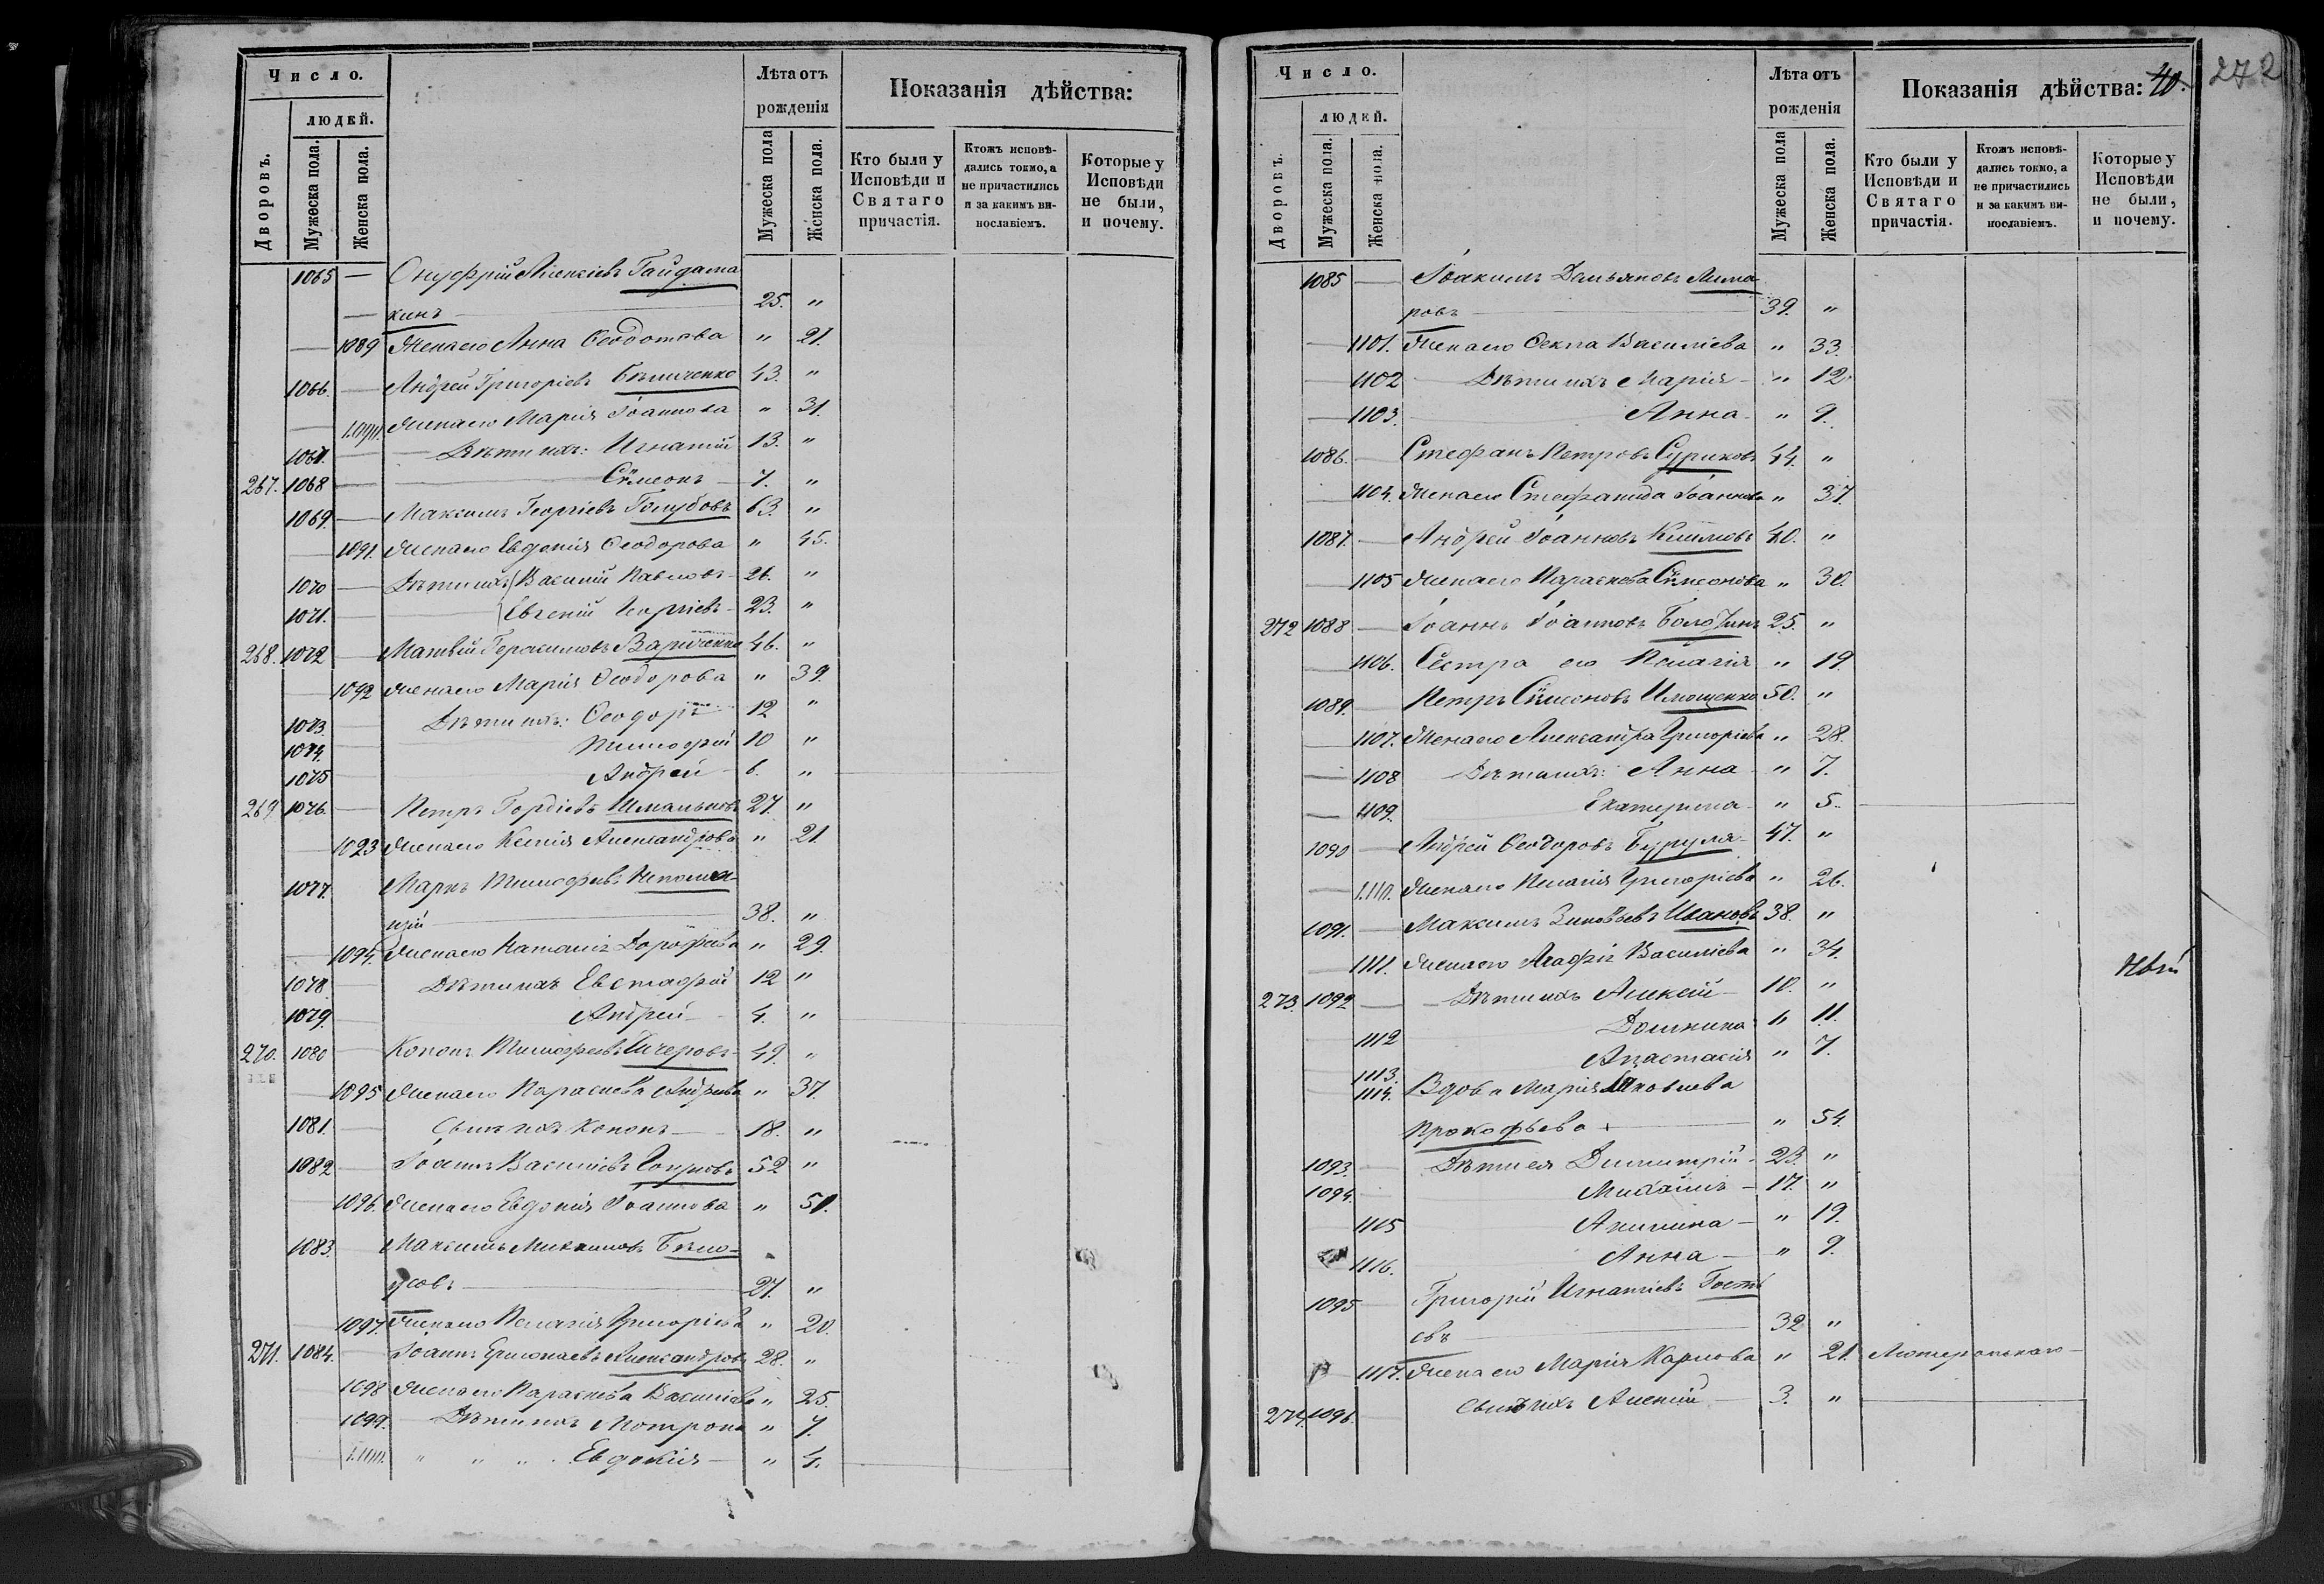 Число.
людей.
Дворовъ.
Мужеска пола.
Женска пола.
Лѣта отъ рожденія
Мужеска пола
Женска пола.
Показанія дѣйства:
Кто были у Исповѣди и Святаго причастія.
Ктожъ исповѣдались токмо, а не причастились и за какимъ винославіемъ.
Которые у Исповѣди не были, и почему.
1065 — Онуфрій Алексіевъ Гайдама
кинъ 25. "
— 1089 Жена его Анна Ѳеодотова " 21.
1066. — Андрей Григоріевъ Бѣличенко 43. "
— 1090. Жена его Марія Іоаннова " 31.
1067. — Дѣти ихъ: Игнатій 13. "
267. 1068 — Сѵмеонъ 7. "
1069. — Максимъ Георгіевъ Голубовъ 63. "
— 1091. Жена его Евдокія Ѳеодорова " 45.
1070 — Дѣти ихъ Василій Павловъ 26. "
1071. — Евгеній 23. "
268. 1072 — Матвѣй Герасимовъ 46. "
— 1092 Жена его Марія Ѳеодорова " 39.
1073. — Дѣти ихъ: Ѳеодоръ 12 "
1074. Тимоѳей 10 "
1075 Андрей 6. "
269 1076. — Петръ Гордіевъ 27. "
— 1093 Жена его Ксенія Александрова " 21.
1077. Маркъ Тимоѳеевъ
38. "
— 1094. Жена его Наталія Дороѳеева " 29.
1078 — Дѣти ихъ Евстафій 12 "
1079. Андрей 4. "
270. 1080 — Кононъ Тимоѳеевъ 49. "
— 1095 Жена его Параскева Андреева " 37.
1081. — Сынъ ихъ Кононъ 18. "
1082 — Іоаннъ Василіевъ 52 "
— 1096. Жена его Евдокія Іоаннова " 51.
1083. — Максимъ Бѣло-
усовъ 27. "
1097. Жена его Пелагія Григоріева " 20.
271. 1084. Іоаннъ Ермолаевъ Александровъ 28. "
1098 Жена его Параскева Василіева " 25.
1099. Дѣти ихъ Матрона " 7.
1100. " " " Евдокія " 4.
Число.
людей.
Дворовъ.
Мужеска пола.
Женска пола.
Лѣта отъ рожденія
Мужеска пола
Женска пола.
Показанія дѣйства: 40. 272
Кто были у Исповѣди и Святаго причастія.
Ктожъ исповѣдались токмо, а не причастились и за какимъ винославіемъ.
Которые у Исповѣди не были, и почему.
1085 — Іоакимъ Демьяновъ Лима
ровъ 39. "
— 1101. Жена его Ѳекла Василіева " 33.
— 1102 Дѣти ихъ Марія " 12.
— 1103. Анна " 9.
1086. — Стефанъ Петровъ Суриковъ 44. "
1104. Жена его Стефанида Іоаннова " 37.
1087. — Андрей Іоанновъ 40. "
— 1105 Жена его Параскева Сѵмеонова " 30.
272 1088 — Іоаннъ Іоанновъ 25. "
— 1106. Сестра его Пелагія " 19.
1089. — Петръ Сѵмеоновъ 50. "
— 1107. Жена его Александра Григоріева " 28.
— 1108 Дѣти ихъ: Анна " 7.
— 1109. Екатерина " 5.
1090 — Андрей Ѳеодоровъ Буруля 47. "
— 1110. Жена его Пелагія Григоріева " 26.
1091. — Максимъ Зиновьевъ Ивановъ 38. "
— 1111. Жена его Агафія Василіева " 34.
273. 1092 — Дѣти ихъ Алексій 10. "
1112 Домникія " 11.
1113. Анастасія " 7.
1114. Вдова Марія Яковлева
Прокофьева " 54.
1093. Дѣти ея Димитрій 23. "
1094. Михаилъ 17. "
1115 Акилина " 19.
1116. Анна " 9.
1095 — Григорій Игнатіевъ Гостѣ
евъ 32 "
1117. Жена его Марія Карлова " 21. Лютеранскаго
274. 1096. Сынъ ихъ Алексій 3. "